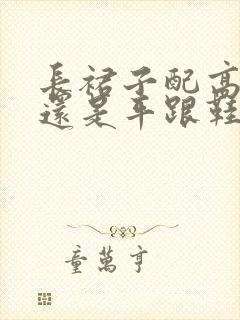 長裙子配高
還是平跟鞋
童萬亨